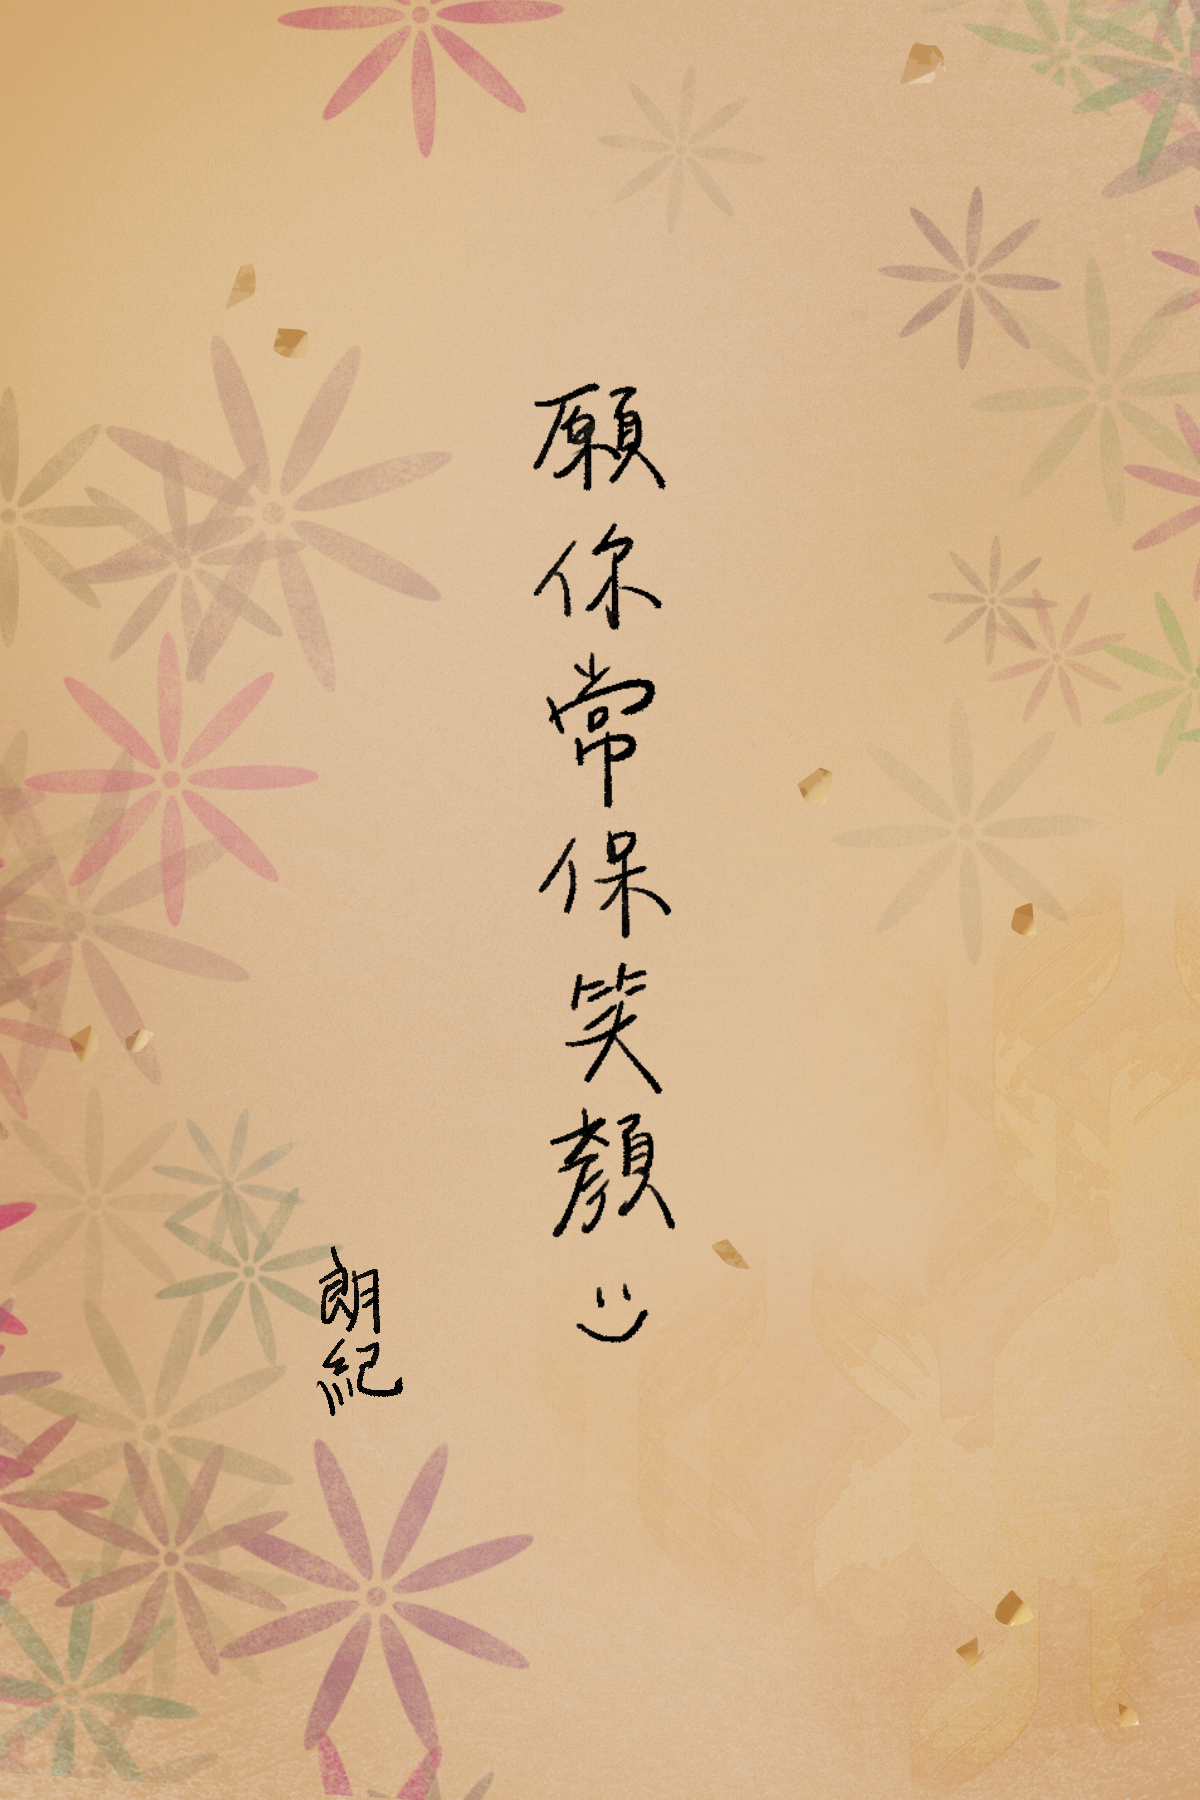 願你常保笑顏:)
朗紀